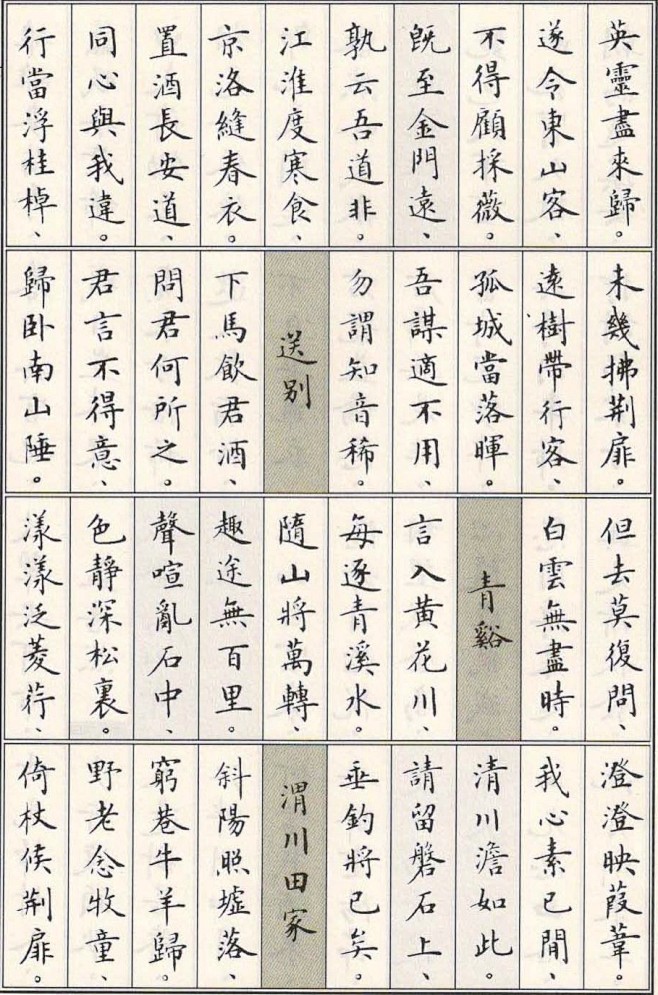 英靈盡來歸。
遂令東山客、
不得顧採薇。
旣至金門遠、
孰云吾道非。
江淮度寒食、
京洛縫春衣。
置酒長安道、
同心與我違。
行當浮桂棹、
未幾拂荆扉。
遠樹帶行客、
孤城當落暉。
吾謀適不用、
勿謂知音稀。
送别
下馬飲君酒、
問君何所之。
君言不得意、
歸卧南山陲。
但去莫復問、
白雲無盡時。
青谿
言入黄花川、
每逐青溪水。
隨山將萬轉、
趣途無百里。
聲喧亂石中、
色靜深松裏。
漾漾泛菱荇、
澄澄映葭葦。
我心素已閒、
清川澹如此。
請留磐石上、
垂釣將已矣。
渭川田家
斜陽照墟落、
窮巷牛羊歸。
野老念牧童、
倚杖候荆扉。